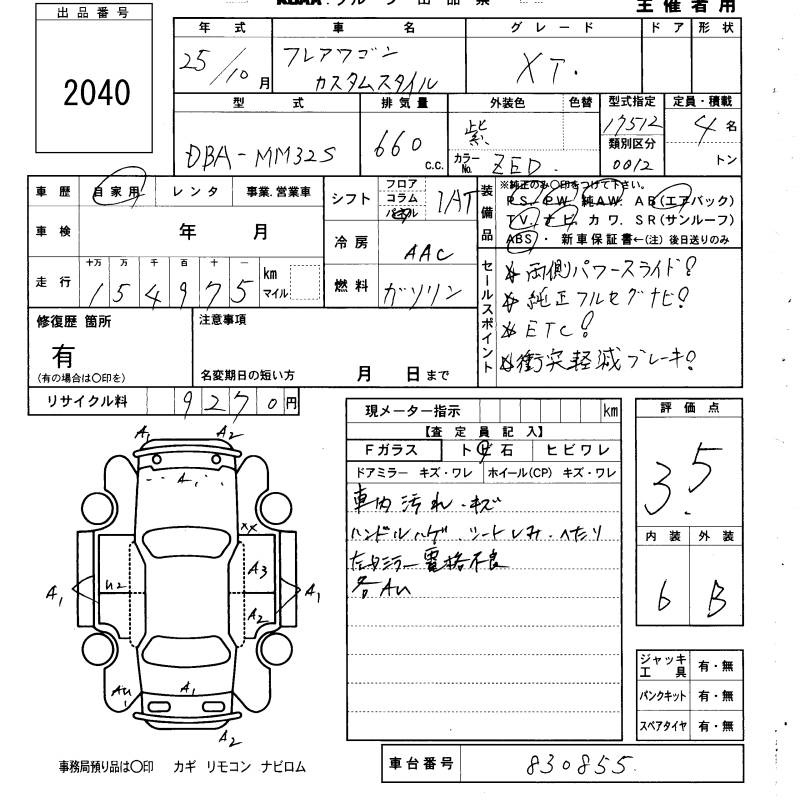 出品番号
2040
主催者用
年式 車名 グレード ドア 形状
25/10月 フレアワゴン カスタムスタイル XT.
型式 排気量 外装色 色替 型式指定 定員・積載
DBA-MM32S 660 c.c. 紫 17512 4名
カラーNo. ZED. 類別区分 0012 トン
車歴 自家用 レンタ 事業.営業車
シフト フロア コラム 1AT
装備品 ※純正のみ〇印をつけて下さい。
PS. PW. 純AW. AB(エアバック)
TV. ナビ. カワ. SR(サンルーフ)
ABS・ 新車保証書←(注) 後日送りのみ
車検 年 月
冷房 AAC
走行 十万 万 千 百 十 一
154975 km マイル
燃料 ガソリン
セールスポイント
両側パワースライド!
純正フルセグナビ!
ETC!
衝突軽減ブレーキ!
修復歴 箇所
有
(有の場合は〇印を)
注意事項
名変期日の短い方 月 日まで
リサイクル料 9270円
現メーター指示 km
【査定員記入】
Fガラス トビ石 ヒビワレ
ドアミラー キズ・ワレ ホイール(CP) キズ・ワレ
車内汚れ・キズ
ハンドルハゲ.シートしみ.へたり
左ミラー電格不良
各AU
評価点
3.5
内装 外装
6 B
ジャッキ工具 有・無
パンクキット 有・無
スペアタイヤ 有・無
A1 A2
A1
XX
A3
U2
A1 A1
A2
AU1 A1
A2
事務局預り品は〇印 カギ リモコン ナビロム
車台番号 830855